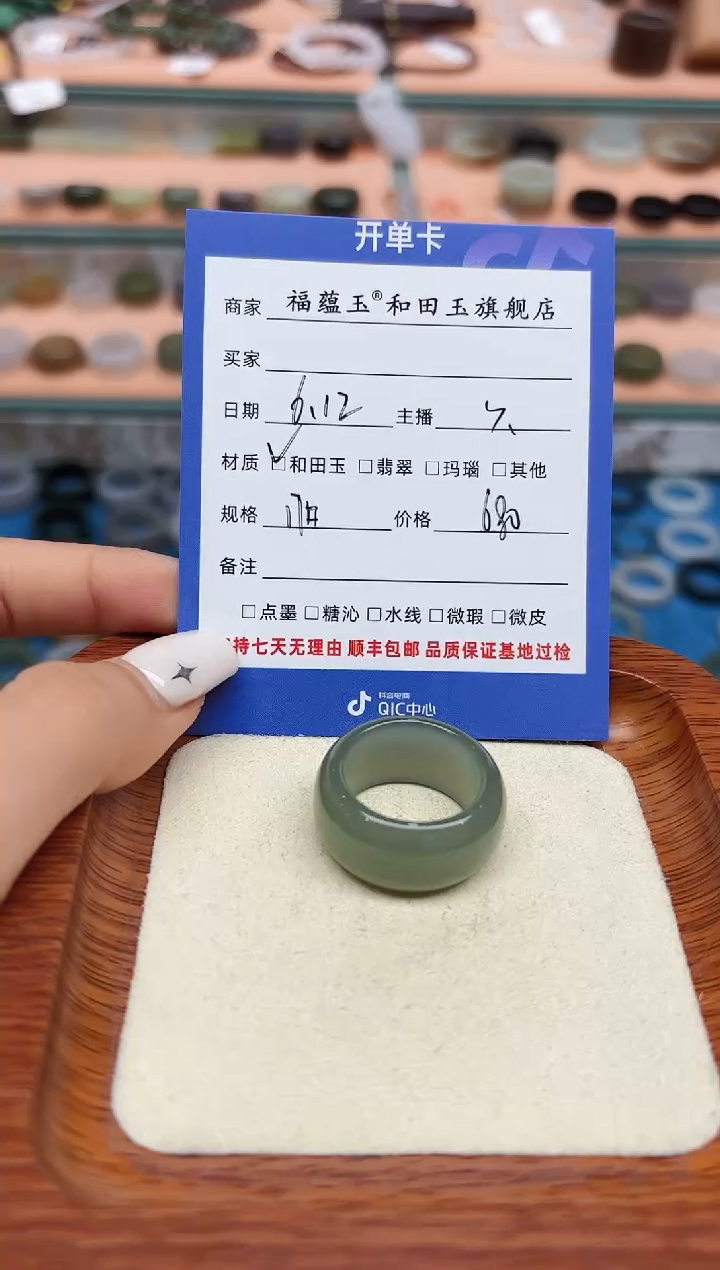 开单卡
商家 福蕴玉®和田玉旗舰店
买家
日期 6.12 主播
材质 ☑和田玉 □翡翠 □玛瑙 □其他
规格 价格 680
备注
□点墨 □糖沁 □水线 □微瑕 □微皮
持七天无理由 顺丰包邮 品质保证基地过检
抖音电商
QIC中心